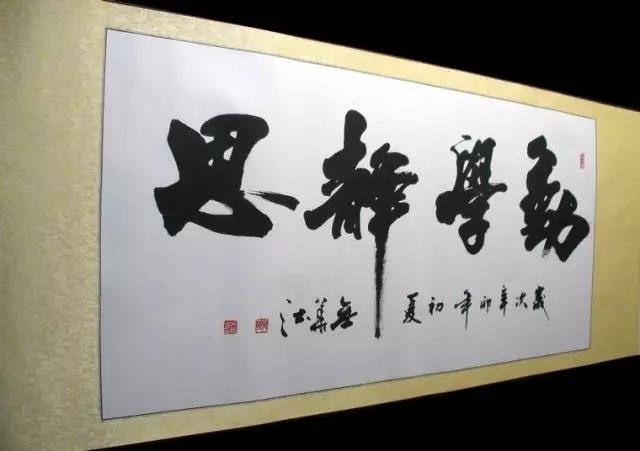 勤學靜思
歲次辛卯年初夏無華